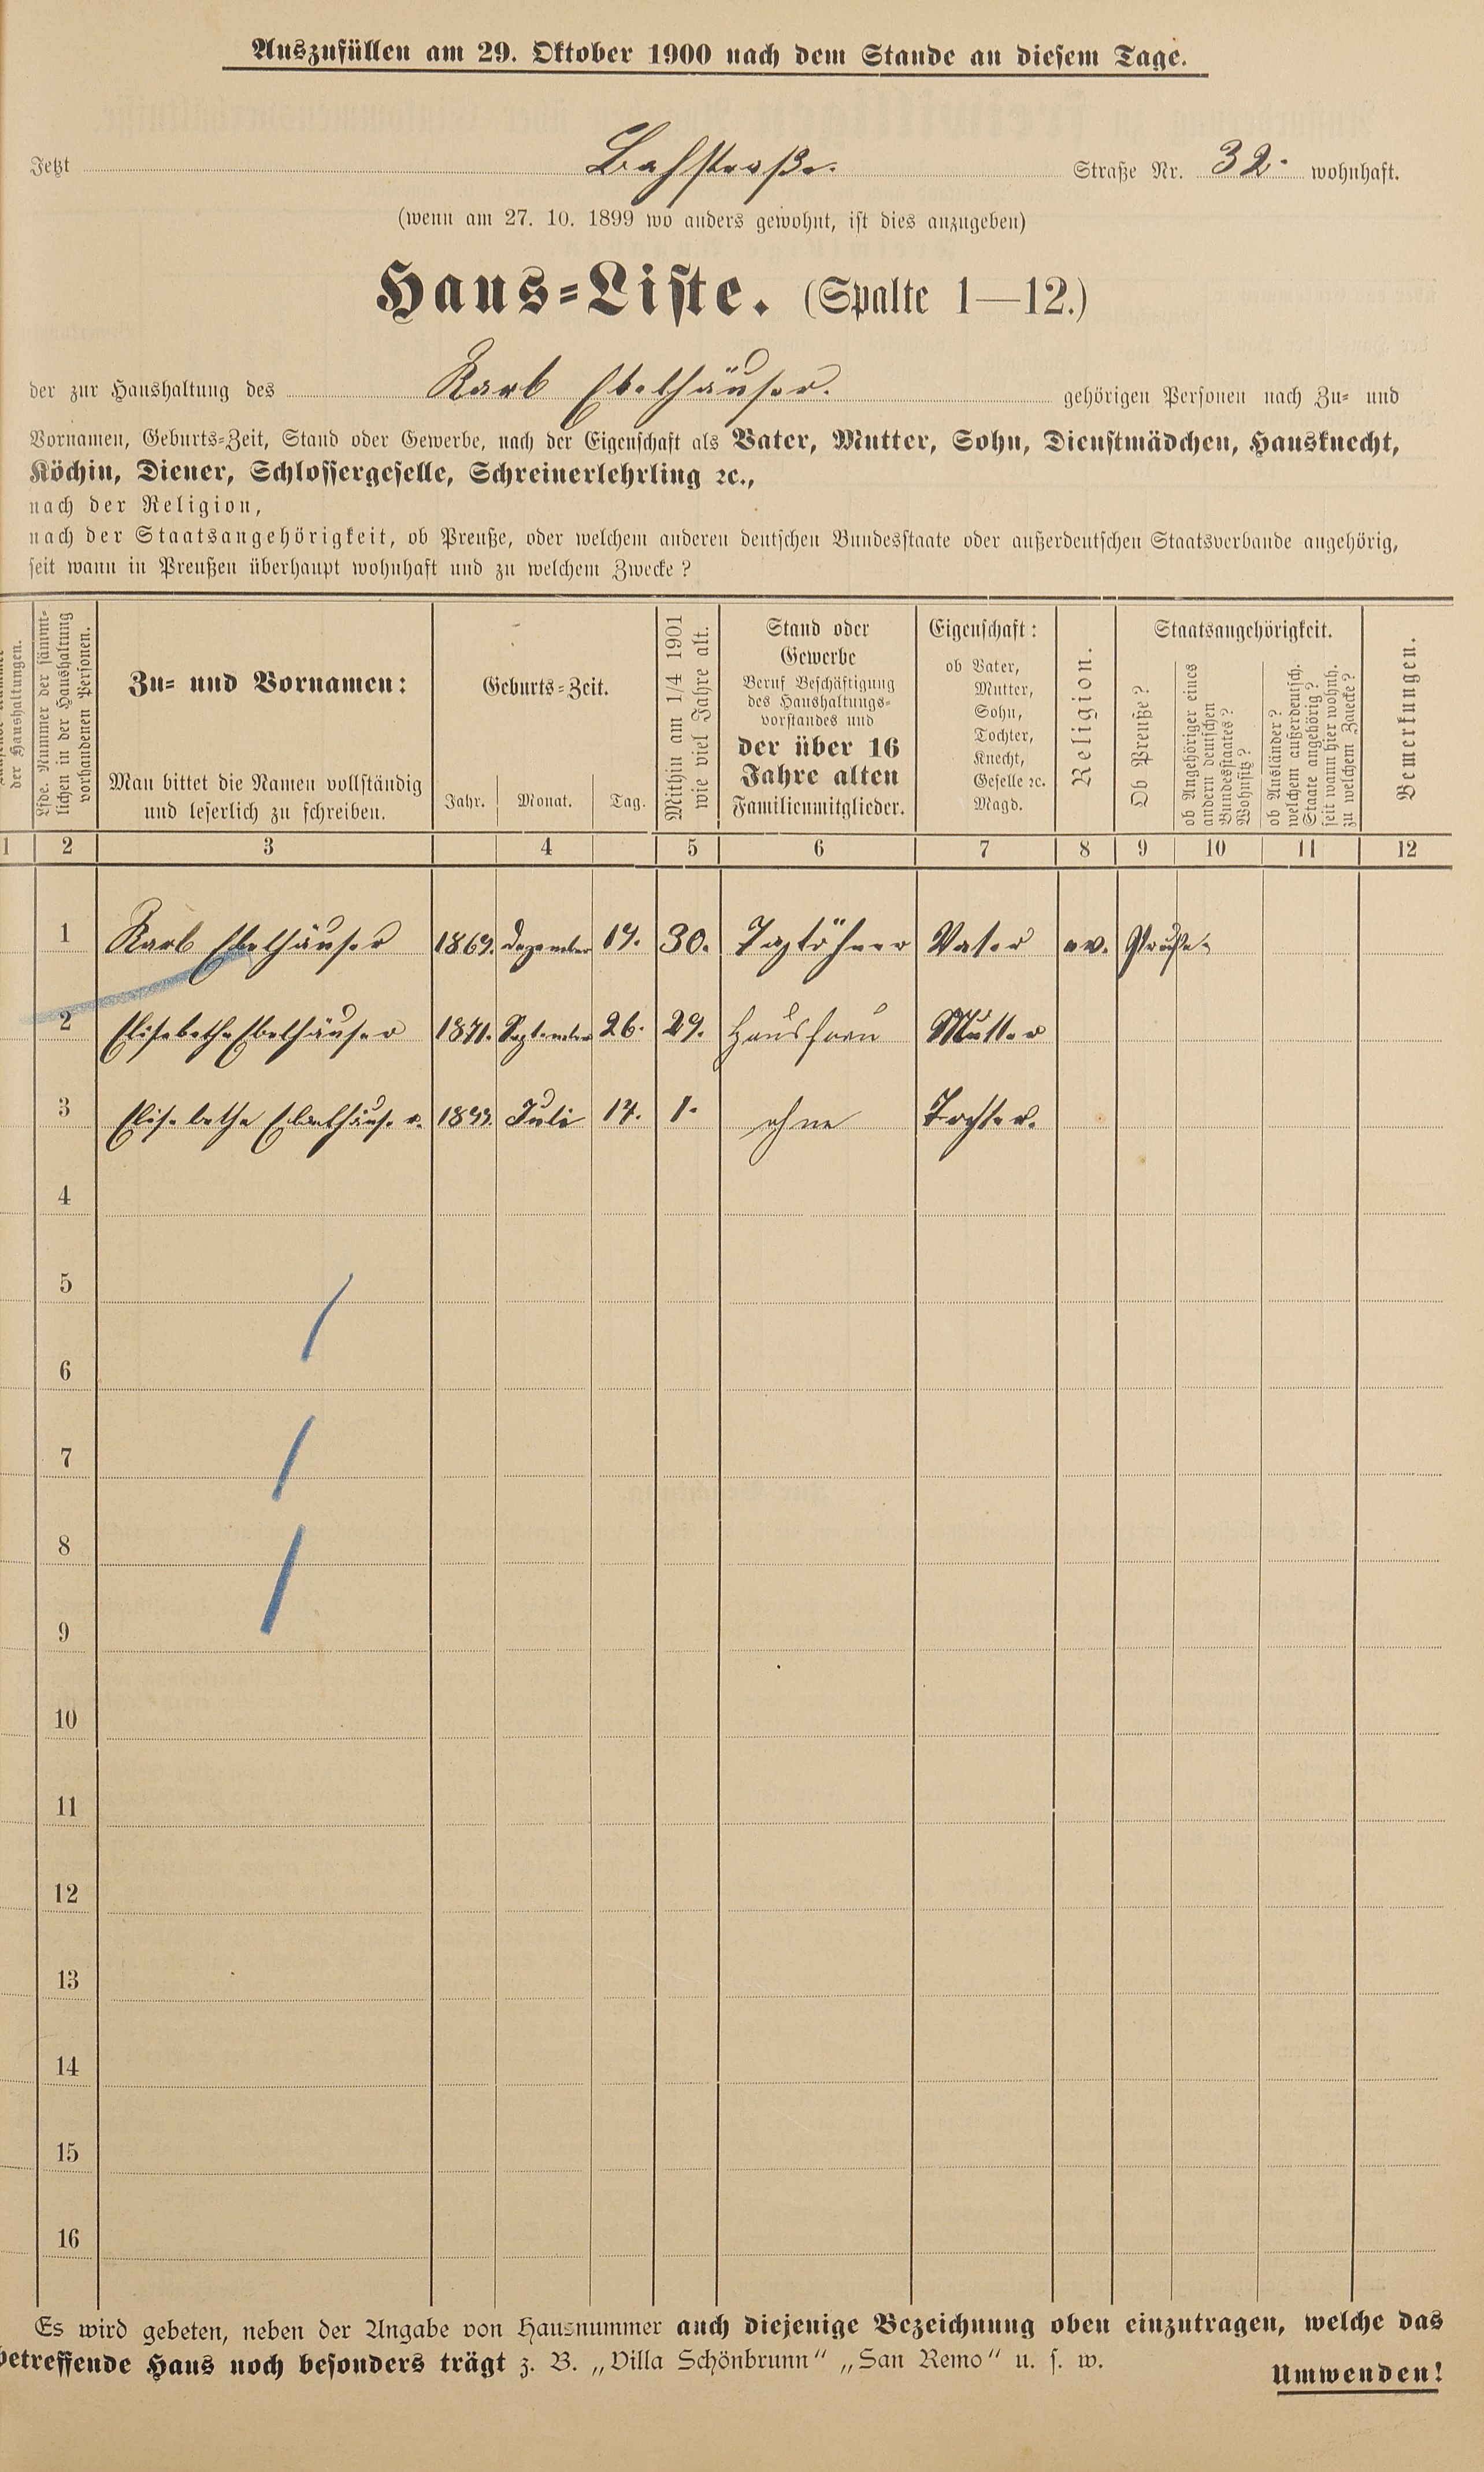 Auszufüllen am 29. Oktober 1900 nach dem Stande an diesem Tage.
Jetzt Bahstraße. Straße Nr. 32. wohnhaft.
(wenn am 27. 10. 1899 wo anders gewohnt, ist dies anzugeben)
Haus-Liste. (Spalte 1—12.)
der zur Haushaltung des Karl Ebelhäuser. gehörigen Personen nach Zu- und
Vornamen, Geburts-Zeit, Stand oder Gewerbe, nach der Eigenschaft als Vater, Mutter, Sohn, Dienstmädchen, Hausknecht,
Köchin, Diener, Schlossergeselle, Schreinerlehrling ꝛc.,
nach der Religion,
nach der Staatsangehörigkeit, ob Preuße, oder welchem anderen deutschen Bundesstaate oder außerdeutschen Staatsverbande angehörig,
seit wann in Preußen überhaupt wohnhaft und zu welchem Zwecke?
der Haushaltungen.
Lfde. Nummer der sämmt-
lichen in der Haushaltung
vorhandenen Personen.
Zu- und Vornamen:
Man bittet die Namen vollständig
und leserlich zu schreiben.
Geburts-Zeit.
Jahr. Monat. Tag.
Mithin am 1/4 1901
wie viel Jahre alt.
Stand oder
Gewerbe
Beruf Beschäftigung
des Haushaltungs-
vorstandes und
der über 16
Jahre alten
Familienmitglieder.
Eigenschaft:
ob Vater,
Mutter,
Sohn,
Tochter,
Knecht,
Geselle ꝛc.
Magd.
Religion.
Staatsangehörigkeit.
Ob Preuße?
ob Angehöriger eines
andern deutschen
Bundesstaates?
Wohnsitz?
ob Ausländer?
welchem außerdeutsch.
Staate angehörig?
seit wann hier wohnh.
zu welchem Zwecke?
Bemerkungen.
1 2 3 4 5 6 7 8 9 10 11 12
1 Karl Ebelhäuser 1869. Dezember 19. 30. Taglöhner Vater ev. Preuße.
2 Elisabethe Ebelhäuser 1871. September 26. 29. Hausfrau Mutter
3 Elisabethe Ebelhäuser. 1899. Juli 14. 1. ohne Tochter.
4
5
6
7
8
9
10
11
12
13
14
15
16
Es wird gebeten, neben der Angabe von Hausnummer auch diejenige Bezeichnung oben einzutragen, welche das
betreffende Haus noch besonders trägt z. B. „Villa Schönbrunn“ „San Remo“ u. s. w.
Umwenden!